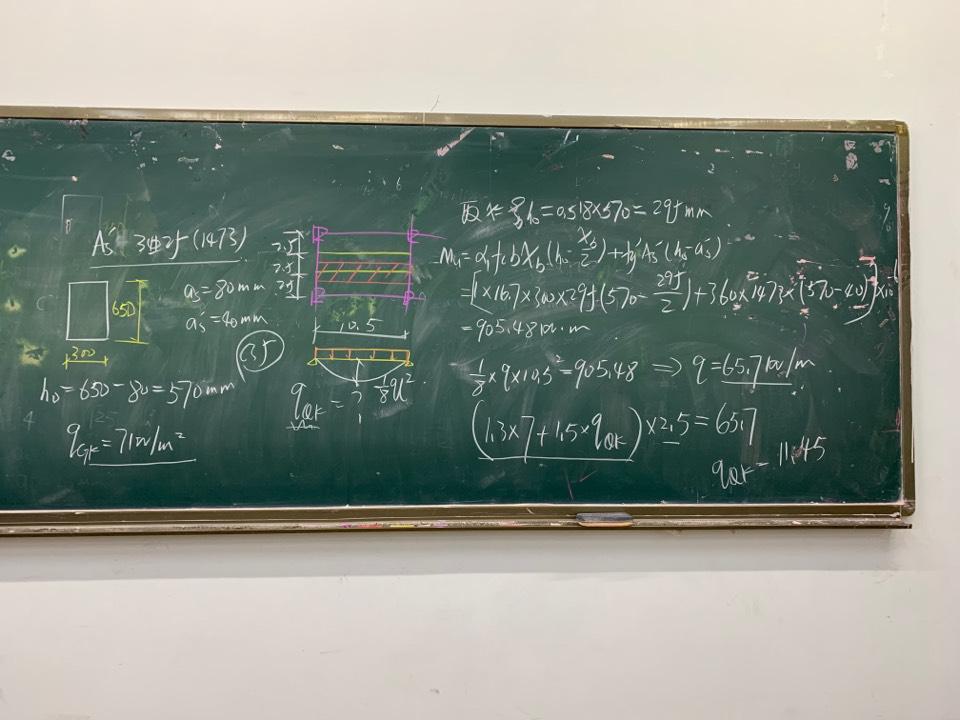 As' = 3Φ25 (1473)
as = 80mm
as' = 40mm
650
300
h0 = 650 - 80 = 570mm
qGK = 7kN/m²
35
2.5
2.5
2.5
10.5
1/8 ql²
qQK = ?
取 x = ξb h0 = 0.518×570 = 295mm
Mu = α1fcbxb(h0 - xb/2) + fy'As'(h0 - as')
= [1×16.7×300×295(570 - 295/2) + 360×1473×(570-40)]×10
= 905.48kN·m
1/8×q×10.5² = 905.48 ⇒ q = 65.7kN/m
(1.3×7 + 1.5×qQK)×2.5 = 65.7
qQK = 11.45